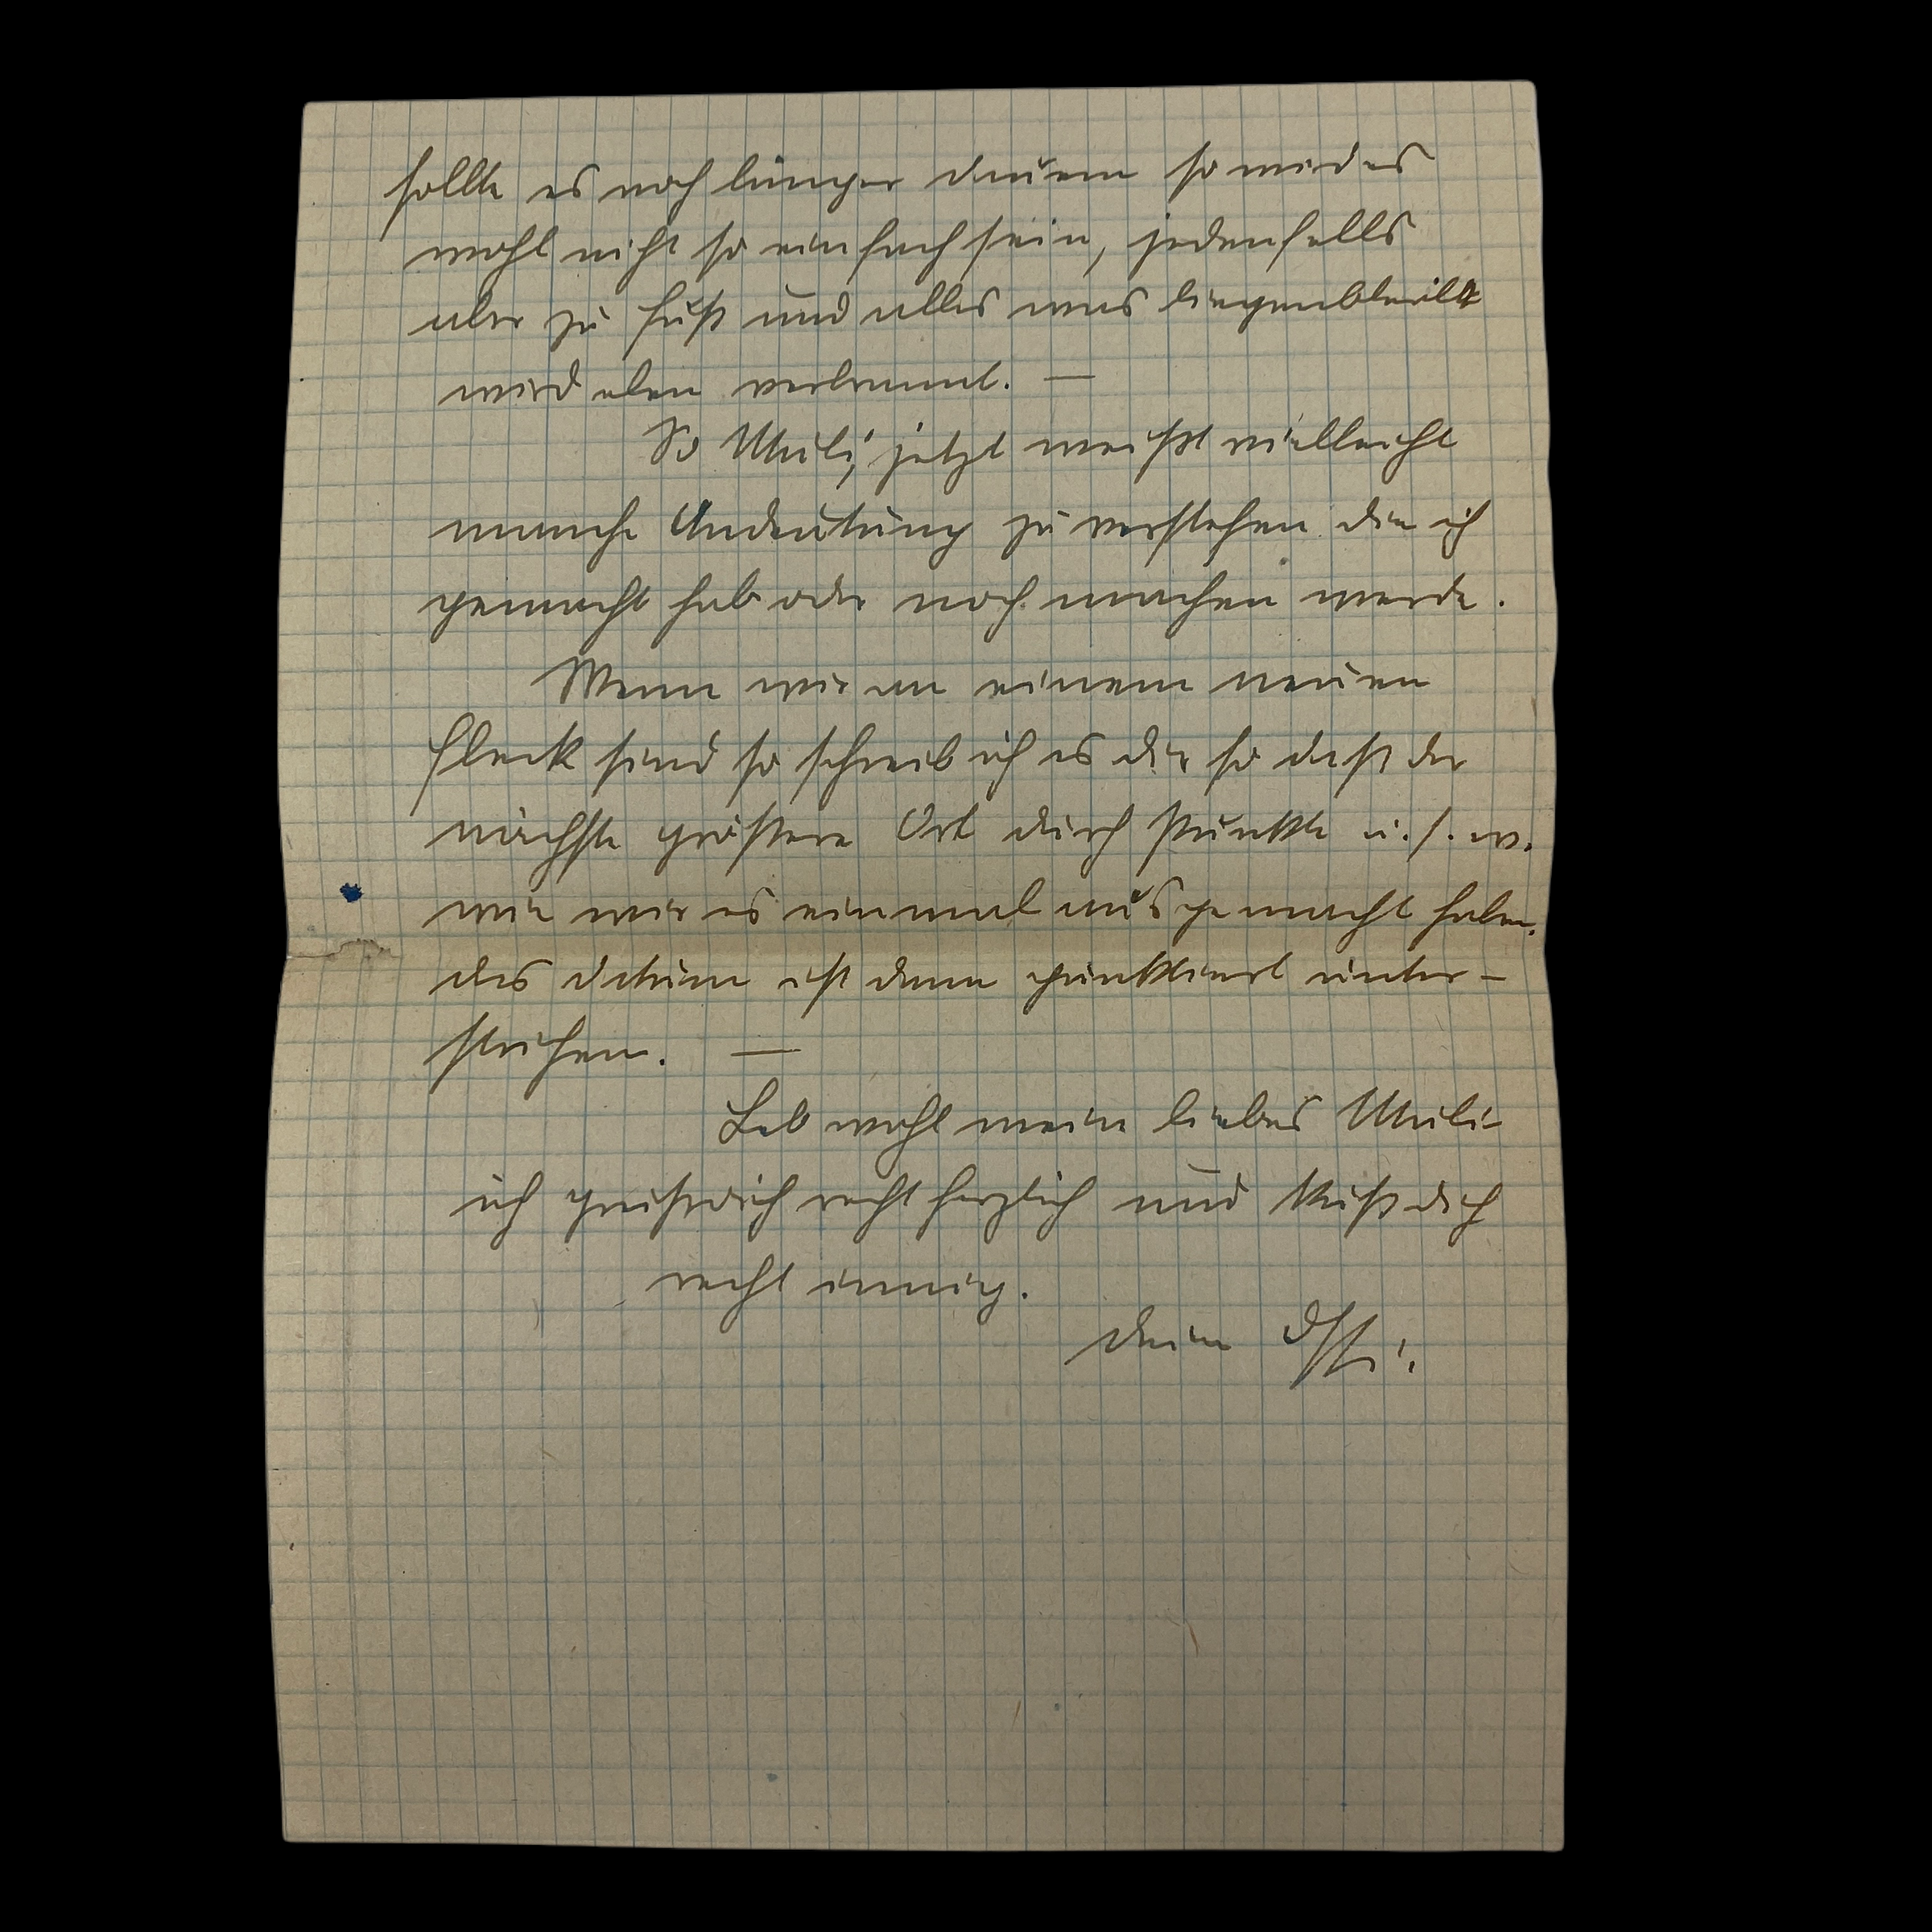 sollte es noch länger dauern so wird es
wohl nicht so einfach sein, jedenfalls
aber zu Fuß und alles was liegenbleibt
wird eben verbrannt. —
So Muli, jetzt weißt vielleicht
manche Andeutung zu verstehen die ich
gemacht hab oder noch machen werde.
Wenn wir an einem neuen
Fleck sind so schreib ich es dir so daß der
nächste größere Ort durch Punkte u.s.w.
wie wir es einmal ausgemacht haben.
das Datum ist dann punktiert unter-
strichen. —
Leb wohl mein liebes Muli
ich grüß dich recht herzlich und küß dich
recht innig.
dein